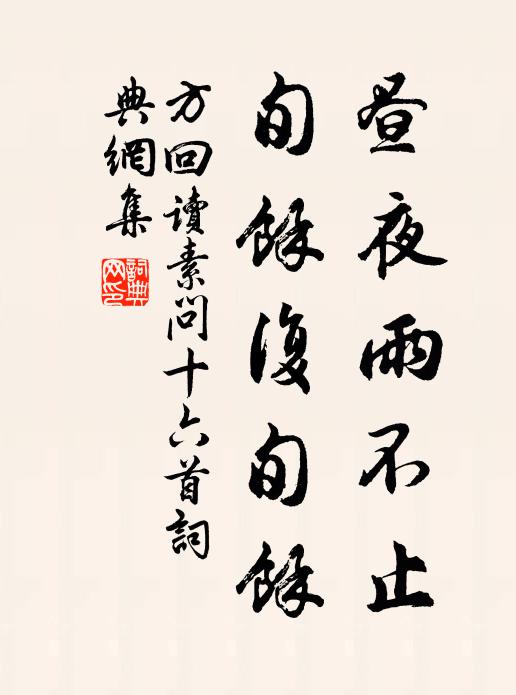 昼夜雨不止
旬餘復旬餘
方回讀素問十六首詞
典網集
詞典网印